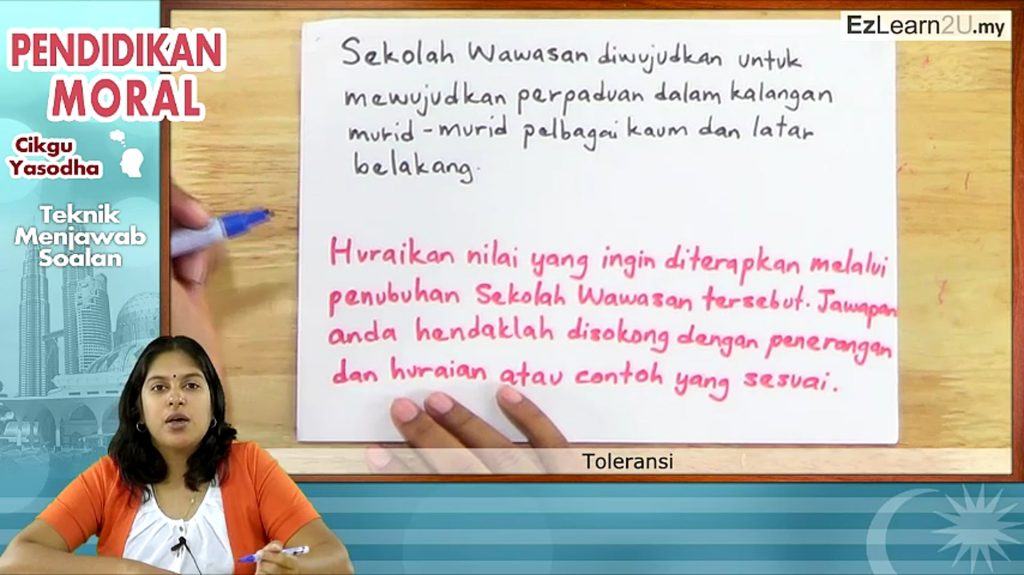 PENDIDIKAN
MORAL
Cikgu
Yasodha
Teknik
Menjawab
Soalan
EzLearn2U.my
Sekolah Wawasan diwujudkan untuk
mewujudkan perpaduan dalam kalangan
murid-murid pelbagai kaum dan latar
belakang.
Huraikan nilai yang ingin diterapkan melalui
penubuhan Sekolah Wawasan tersebut. Jawapan
anda hendaklah disokong dengan penerangan
dan huraian atau contoh yang sesuai.
Toleransi